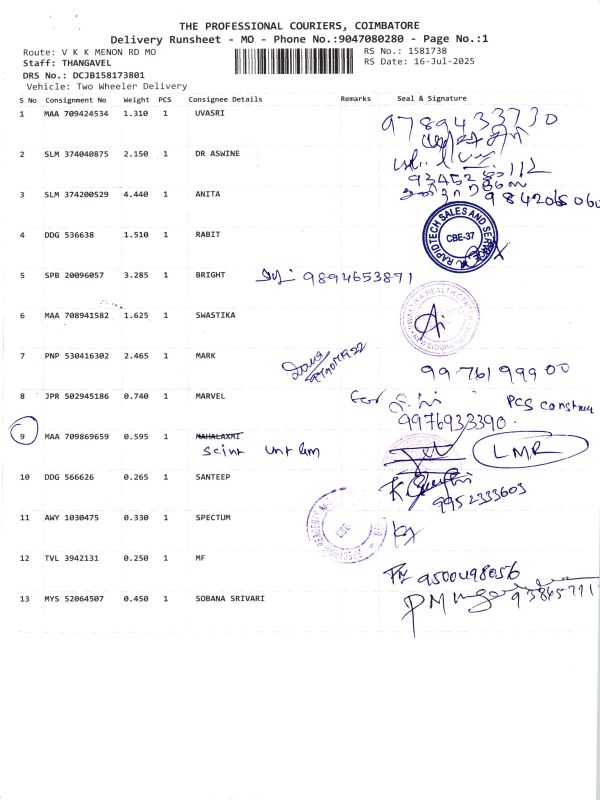 THE PROFESSIONAL COURIERS, COIMBATORE
Delivery Runsheet - MO - Phone No.:9047080280 - Page No.:1
Route: V K K MENON RD MO RS No.: 1581738
Staff: THANGAVEL RS Date: 16-Jul-2025
DRS No.: DCJB158173801
Vehicle: Two Wheeler Delivery
S No Consignment No Weight PCS Consignee Details Remarks Seal & Signature
1 MAA 709424534 1.310 1 UVASRI
9789433730
2 SLM 374040875 2.150 1 DR ASWINE
3 SLM 374200529 4.440 1 ANITA
984206506
4 DDG 536638 1.510 1 RABIT
RAPIDTECH SALES AND SERVICE
CBE-37
5 SPB 20096057 3.285 1 BRIGHT 9894653871
6 MAA 708941582 1.625 1 SWASTIKA
7 PNP 530416302 2.465 1 MARK
9976199900
8 JPR 502945186 0.740 1 MARVEL for PCS
9976933390
9 MAA 709869659 0.595 1 MAHALAXMI
L.M.R
10 DDG 566626 0.265 1 SANTEEP
9952333603
11 AWY 1030475 0.330 1 SPECTUM
CBE
12 TVL 3942131 0.250 1 MF
9500498056
13 MYS 52064507 0.450 1 SOBANA SRIVARI